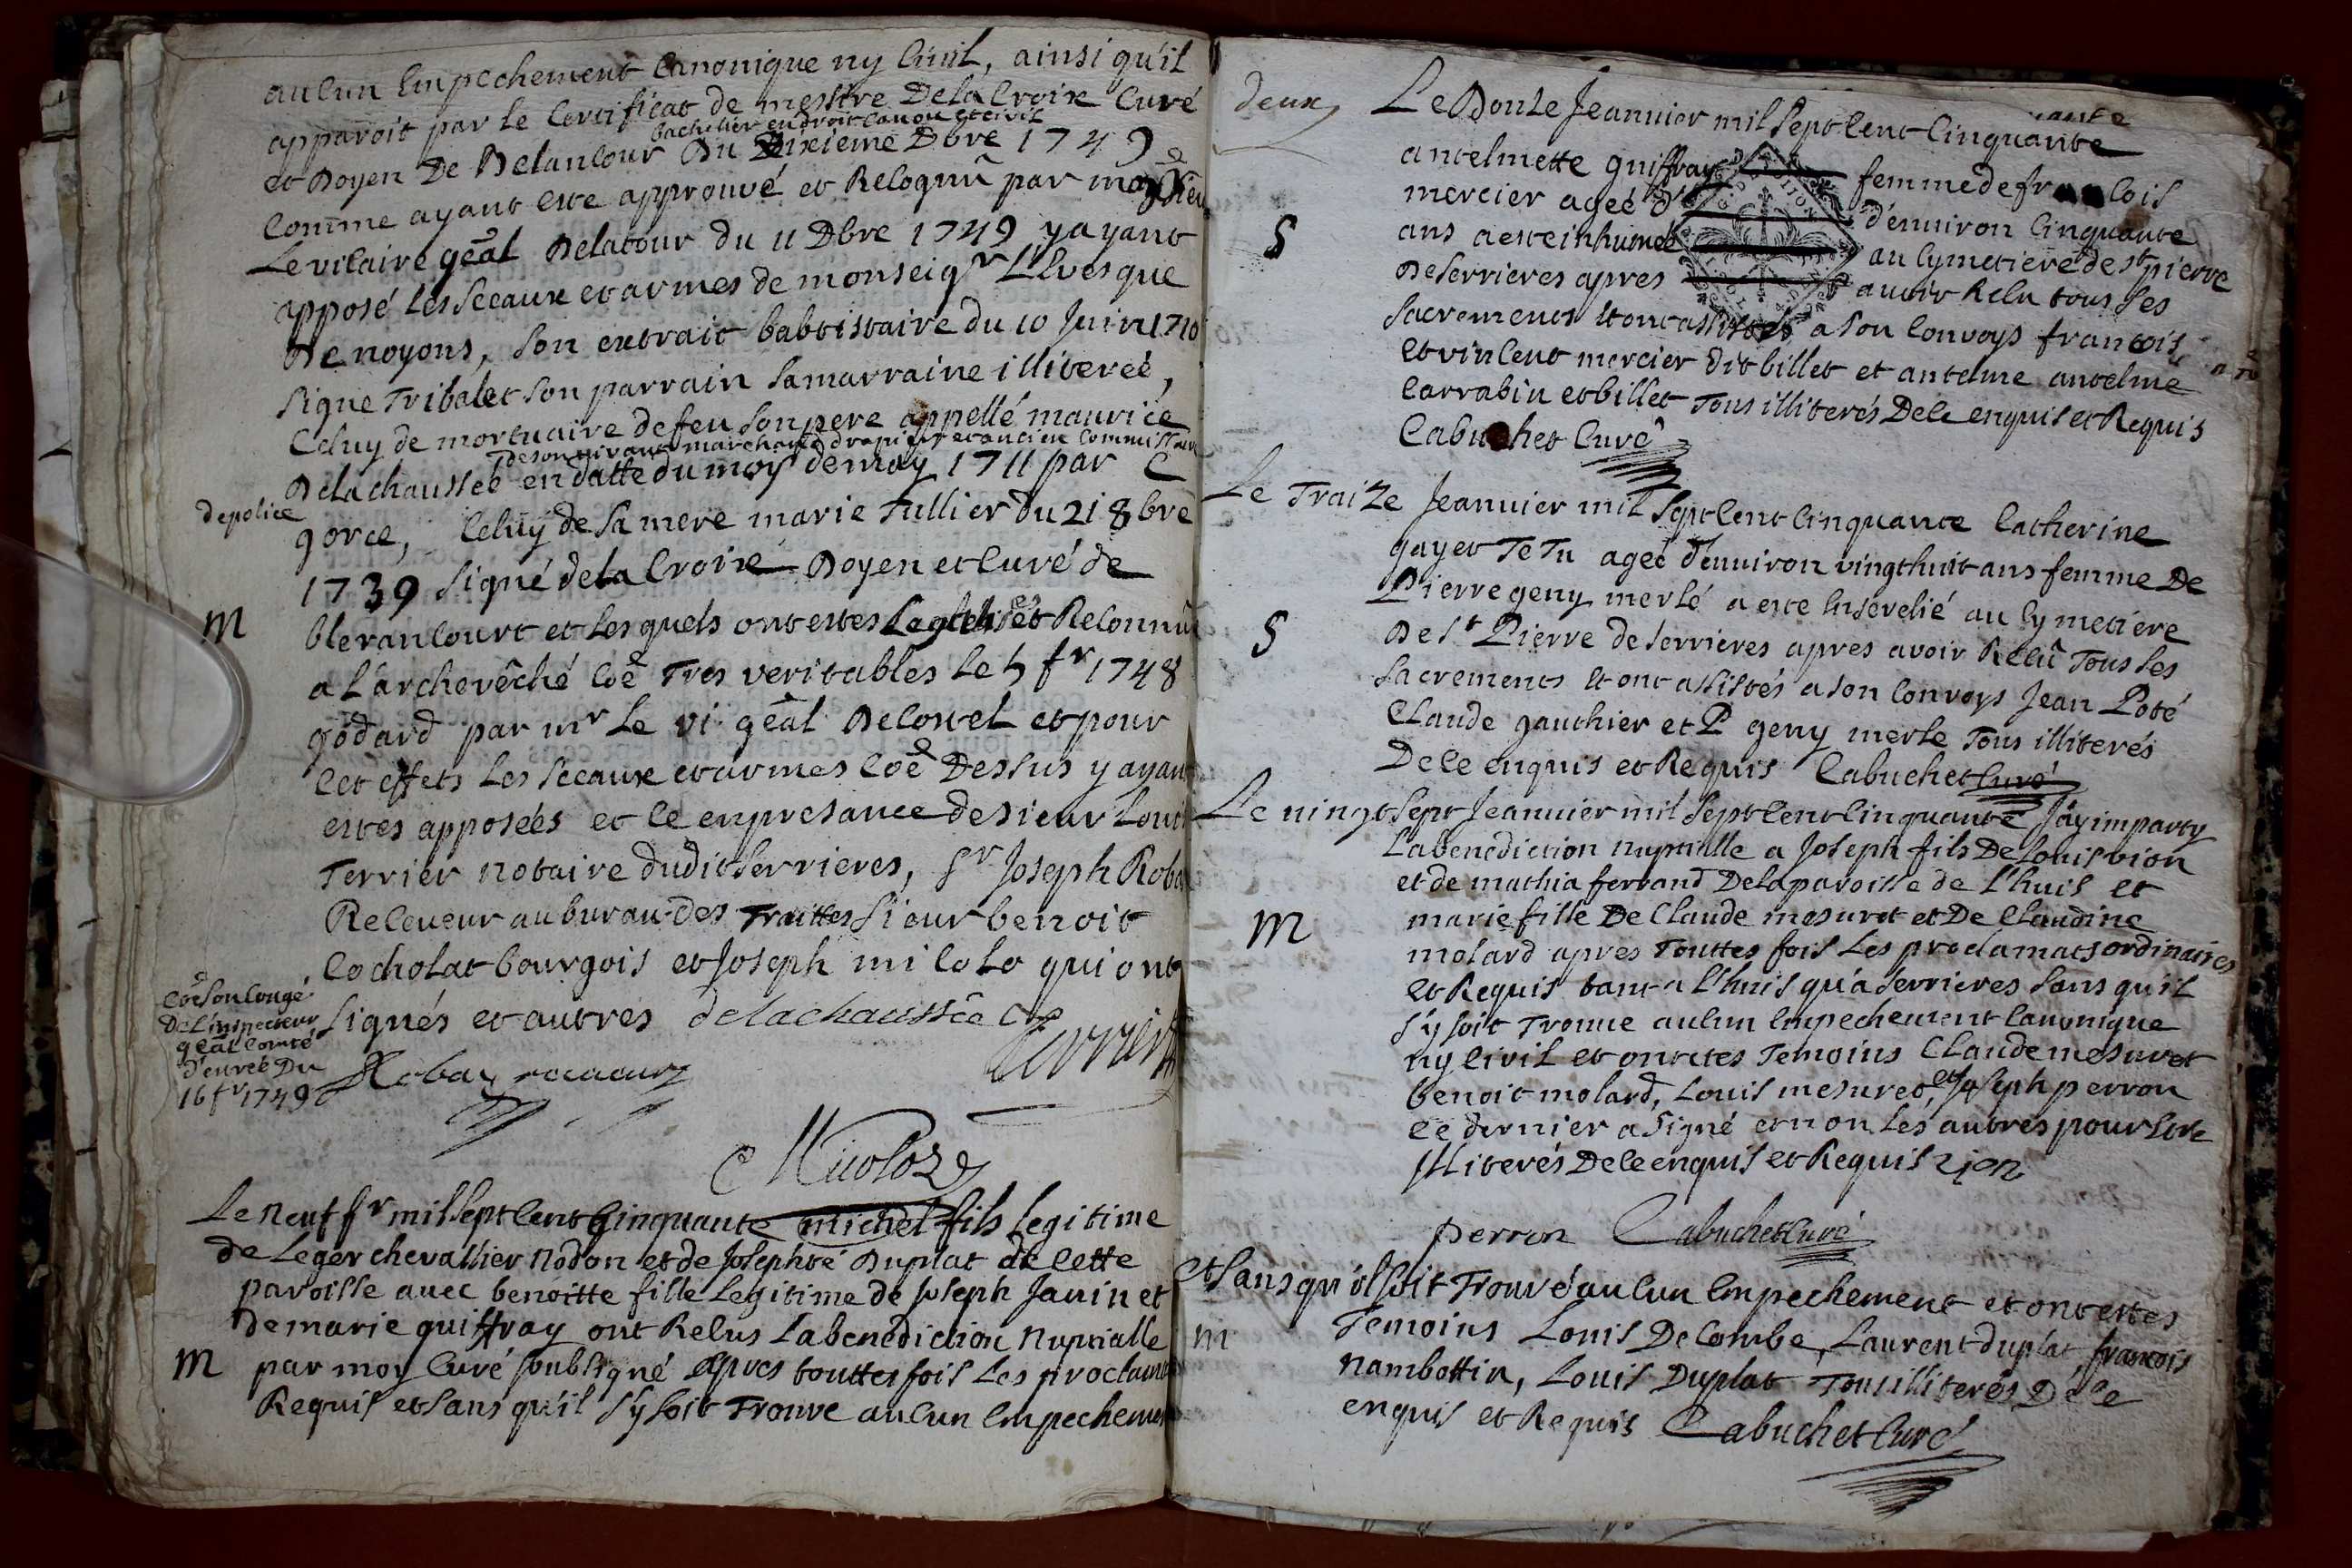 aucun Empechement Canonique ny Civil, ainsi qu'il
apparoit par le Certificat de messire Delacroix Curé
bachelier en droit canon et civil
et Doyen De Belancour Du Dixième Dbre 1749
Comme ayant este approuvé et Recognû par
Le vicaire geãl Delatour du 11 Dbre 1749 y ayant
apposé Les sceaux et armes de monseigr L'Evesque
De noyons, son extrait babtistaire du 10 Juin 1710
signe Tribalet son parrain samarraine illiterée,
Celuy de mortuaire de feu son pere appellé maurice
de son vivant marchand drapier et ancien Commissaire
de police
Delachaussée en datte du moys de may 1711 par C
gorce, Celuy de sa mere marie Tullier du 21 8bre
1739 signé dela Croix Doyen et Curé de
M
blerancourt et Lesquels ont estes Reconnûs
a L'archevêché Coẽ Tres veritables Le 5 fr 1748
godard par mr Le vi. geãl Decostel et pour
Cet effets Les sceaux et armes Coẽ Dessus y ayant
estes apposées et Ce en presance de sieur Louis
Terrier notaire dudit serrieres, sr Joseph Robat
Receveur au burau des Traittes sieur benoit
Cocholat bourgois et Joseph milolo qui ont
signés et autres delachaussée
Coẽ son Congé
De L'inspecteur
geãl Comté
d'eu
16 fr 1749
Terrier
Robat
Micoloz
Le neuf fr mil sept Cent Cinquante michel fils Legitime
de Leger chevallier Nodon et de Josephté Duplat de Cette
paroisse avec benoitte fille Legitime de Joseph Janin et
de marie guiffray ont Recus La benediction Nuptialle
M
par moy Curé soubsigné apres touttes fois Les proclamats
Requis et sans qu'il s'y soit Trouve aucun Empechement
deux
Le Douze Jeanvier mil sept Cent Cinquante
antelmette guiffray femme de francois
mercier ageé d'environ Cinquante
S
ans a este inhumeé au Cymetiere de st pierre
De serrieres apres avoir Recu tous ses
sacrements et ont assistés a son Convoys francois
et vincent mercier dit billet et antelme antelme
Carrabin et billet Tous illiterés De Ce enquis et Requis
Cabuchet Curé
Le Traize Jeanvier mil sept Cent Cinquante Catherine
gayet TeTu ageé d'environ vingt huit ans femme De
Pierre geny merlé a este Enseveliè au Cymetiere
S
De st Pierre de serrieres apres avoir Recû Tous Ses
sacrements et ont assistés a son Convoys Jean Poté
Claude gauthier et P geny merle Tous illiterés
De Ce enquis et Requis Cabuchet Curé
Le vingt sept Jeanvier mil sept Cent Cinquante J'ay imparty
La benediction nuptialle a Joseph fils De Louis vion
et de mathia ferrand De la paroisse de L'huis et
M
marie fille De Claude mesuret et De Claudine
molard apres Touttes fois Les proclamats ordinaires
et Requis tant a L'huis qu'a serrieres sans qu'il
s'y soit Trouve aucun Empechement Canonique
ny Civil et ont etes Temoins Claude mesuret
benoit molard, Louis mesuret, et Joseph perron
Ce dernier a signé et non Les autres pour Estre
illiterés De Ce enquis et Requis
perron Cabuchet Curé
et sans qu'il soit Trouvé aucun Empechement et ont estes
M
Temoins Louis De Combe, Laurent duplat, francois
nambottin, Louis Duplat Tous illiterés De Ce
enquis et Requis Cabuchet Curé